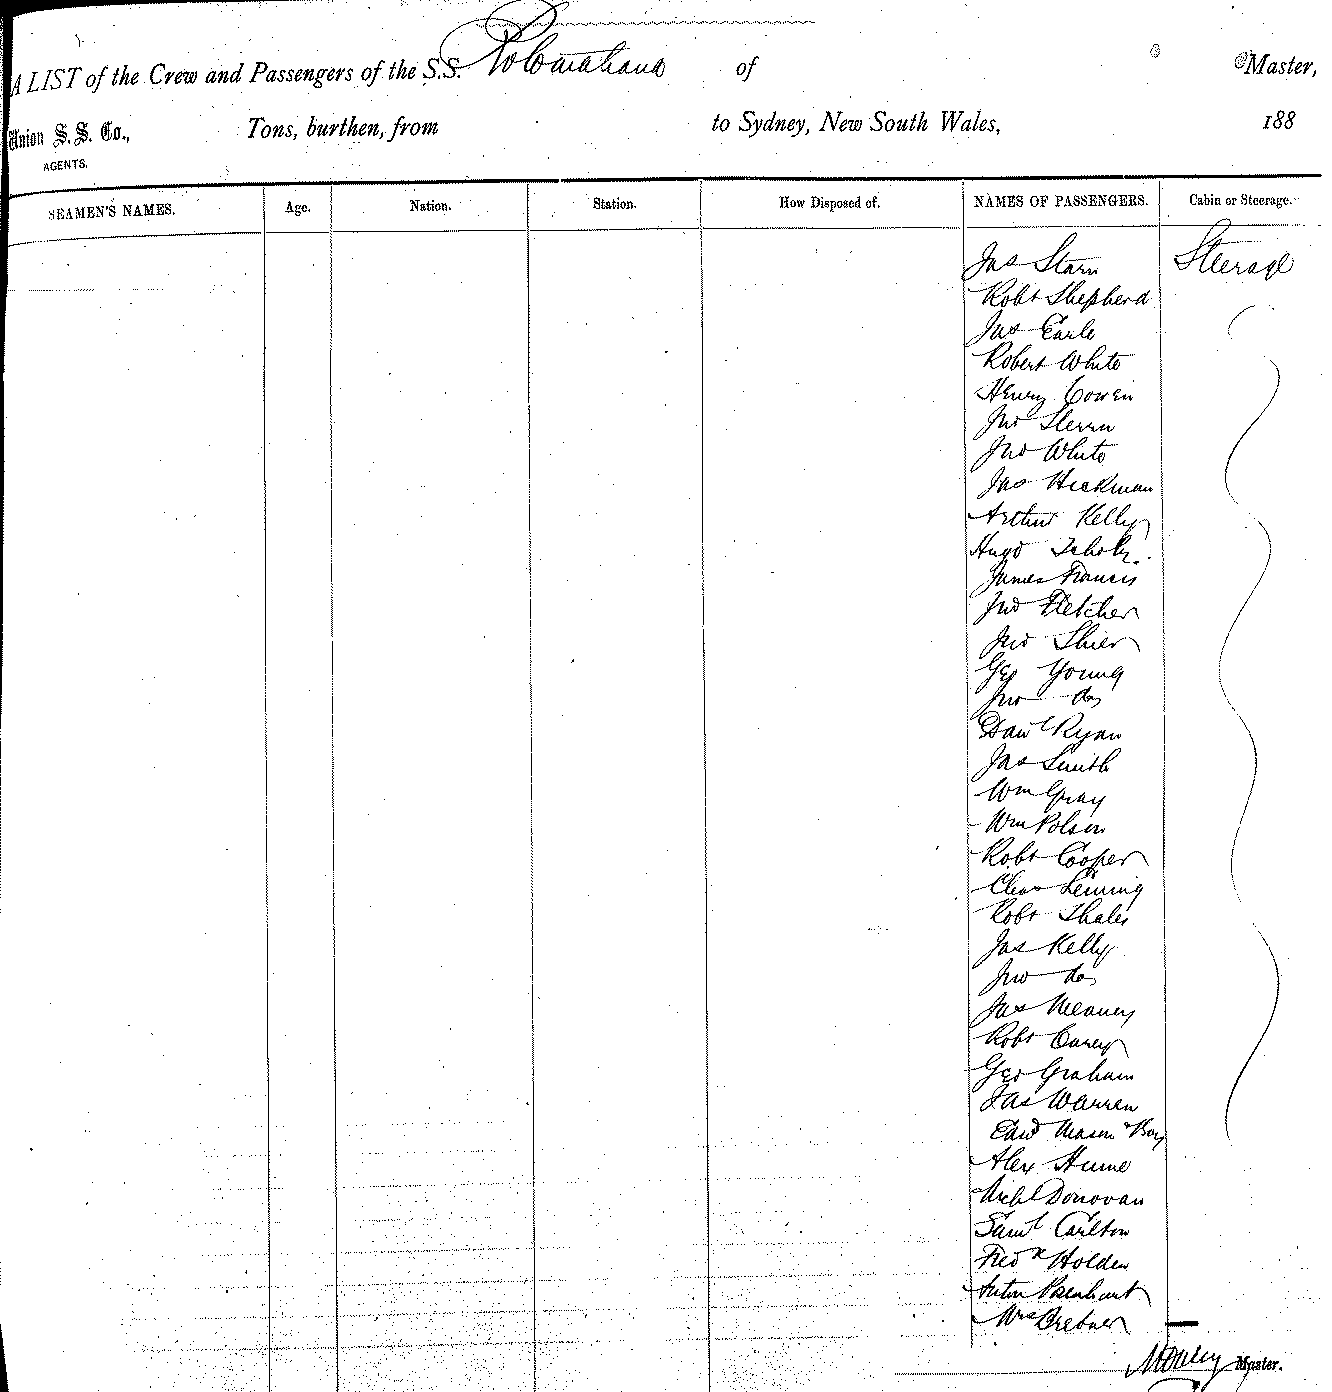 A LIST of the Crew and Passengers of the S.S. Rotomahana of Master,
Union S. S. Co., Tons, burthen, from to Sydney, New South Wales, 188
AGENTS.
SEAMEN'S NAMES. Age. Nation. Station. How Disposed of. NAMES OF PASSENGERS. Cabin or Steerage.
Jas Starn Steerage
Robt Shepherd
Jas Earle
Robert White
Henry Cowen
Jno
Jno White
Jas Hickman
Arthur Kelly
Hugo Scholz
James Francis
Jno Fletcher
Jno Shier
Geo Young
Jno do
Danl Ryan
Jas Smith
Wm Gray
Wm Polson
Robt Cooper
Chas Leming
Robt Thales
Jas Kelly
Jno do
Jas Meaney
Robt Carey
Geo Graham
Jas Warren
Edwd Mason & Boy
Alex Hume
Michl Donovan
Saml Carlton
Fredk Holden
Anton
Mrs Bretner
Master.